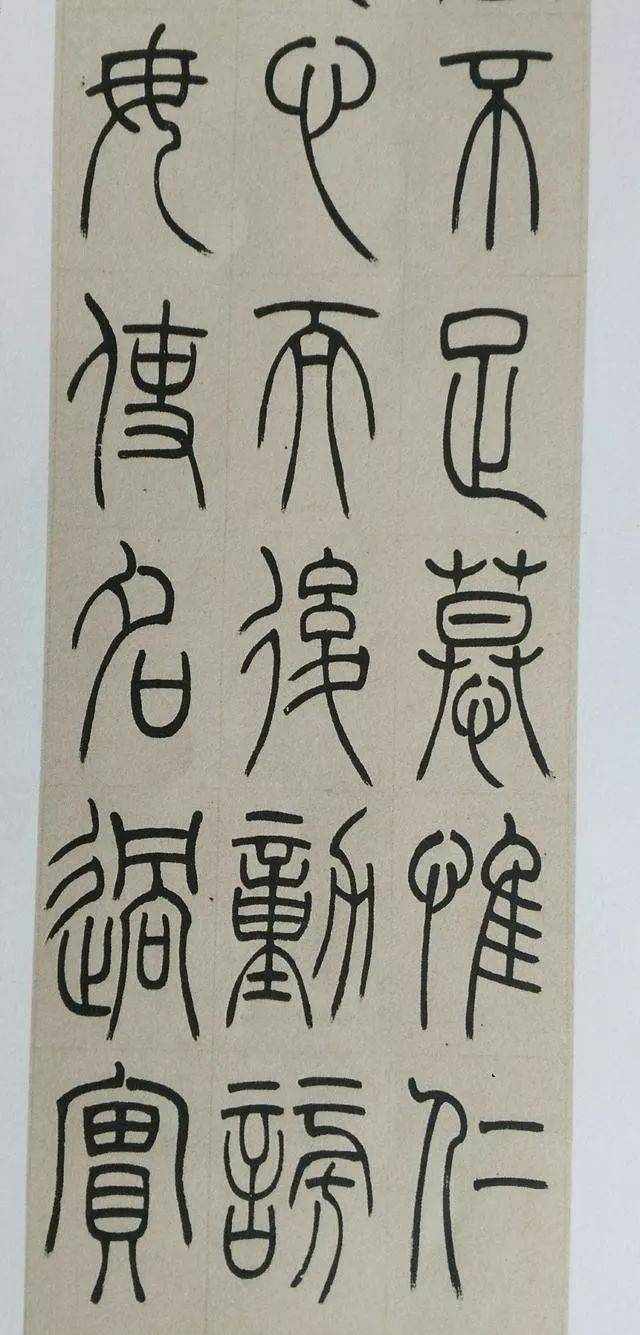 不足慕惟仁
心而後動謗
毋使名過實